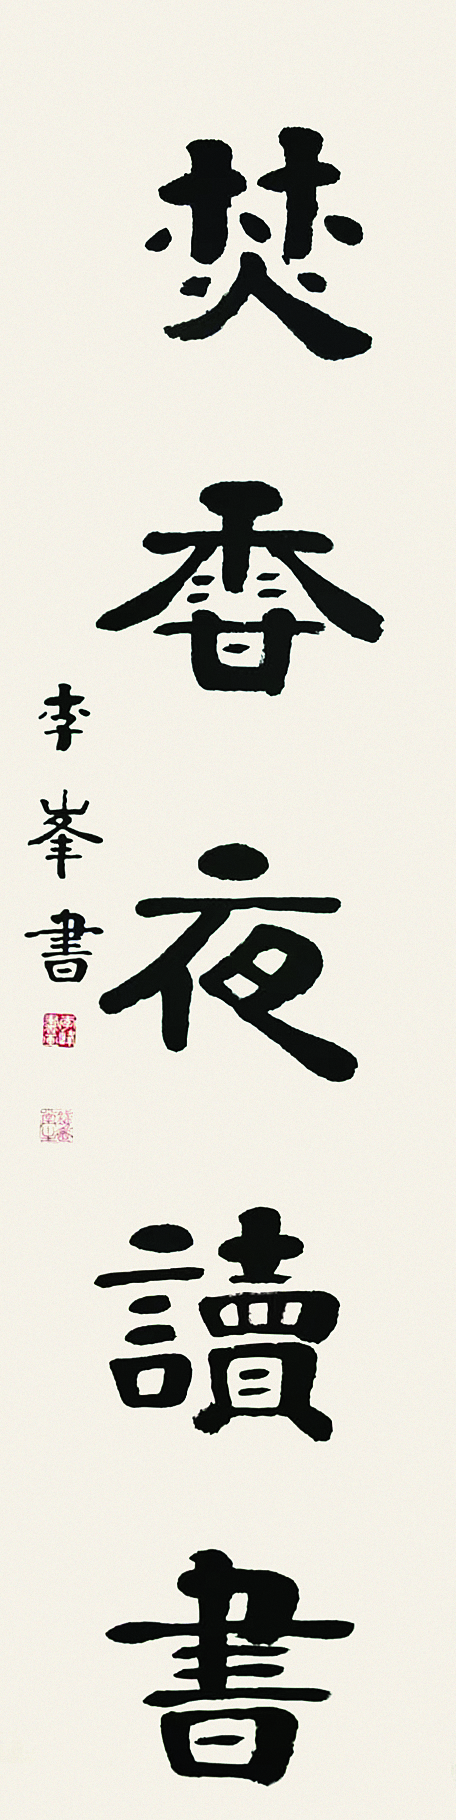 焚香夜讀書
李峯書